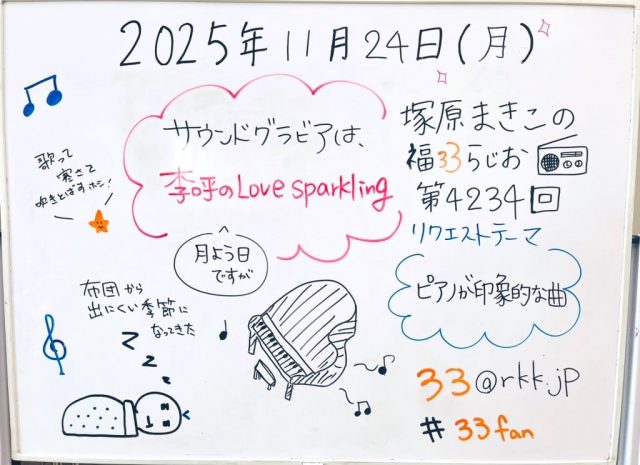 2025年11月24日(月)
サウンドグラビアは、
李呼のLove sparkling
月よう日
ですが
塚原まきこの
福33らじお
第4234回
リクエストテーマ
ピアノが印象的な曲
33@rkk.jp
#33fan
歌って
寒さて
吹きとばすホシ!
布団から
出にくい季節に
なってきた
z
z
z